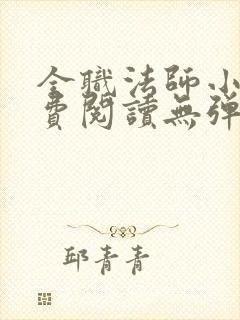 全職法師小
費閱讀無彈
邱青青